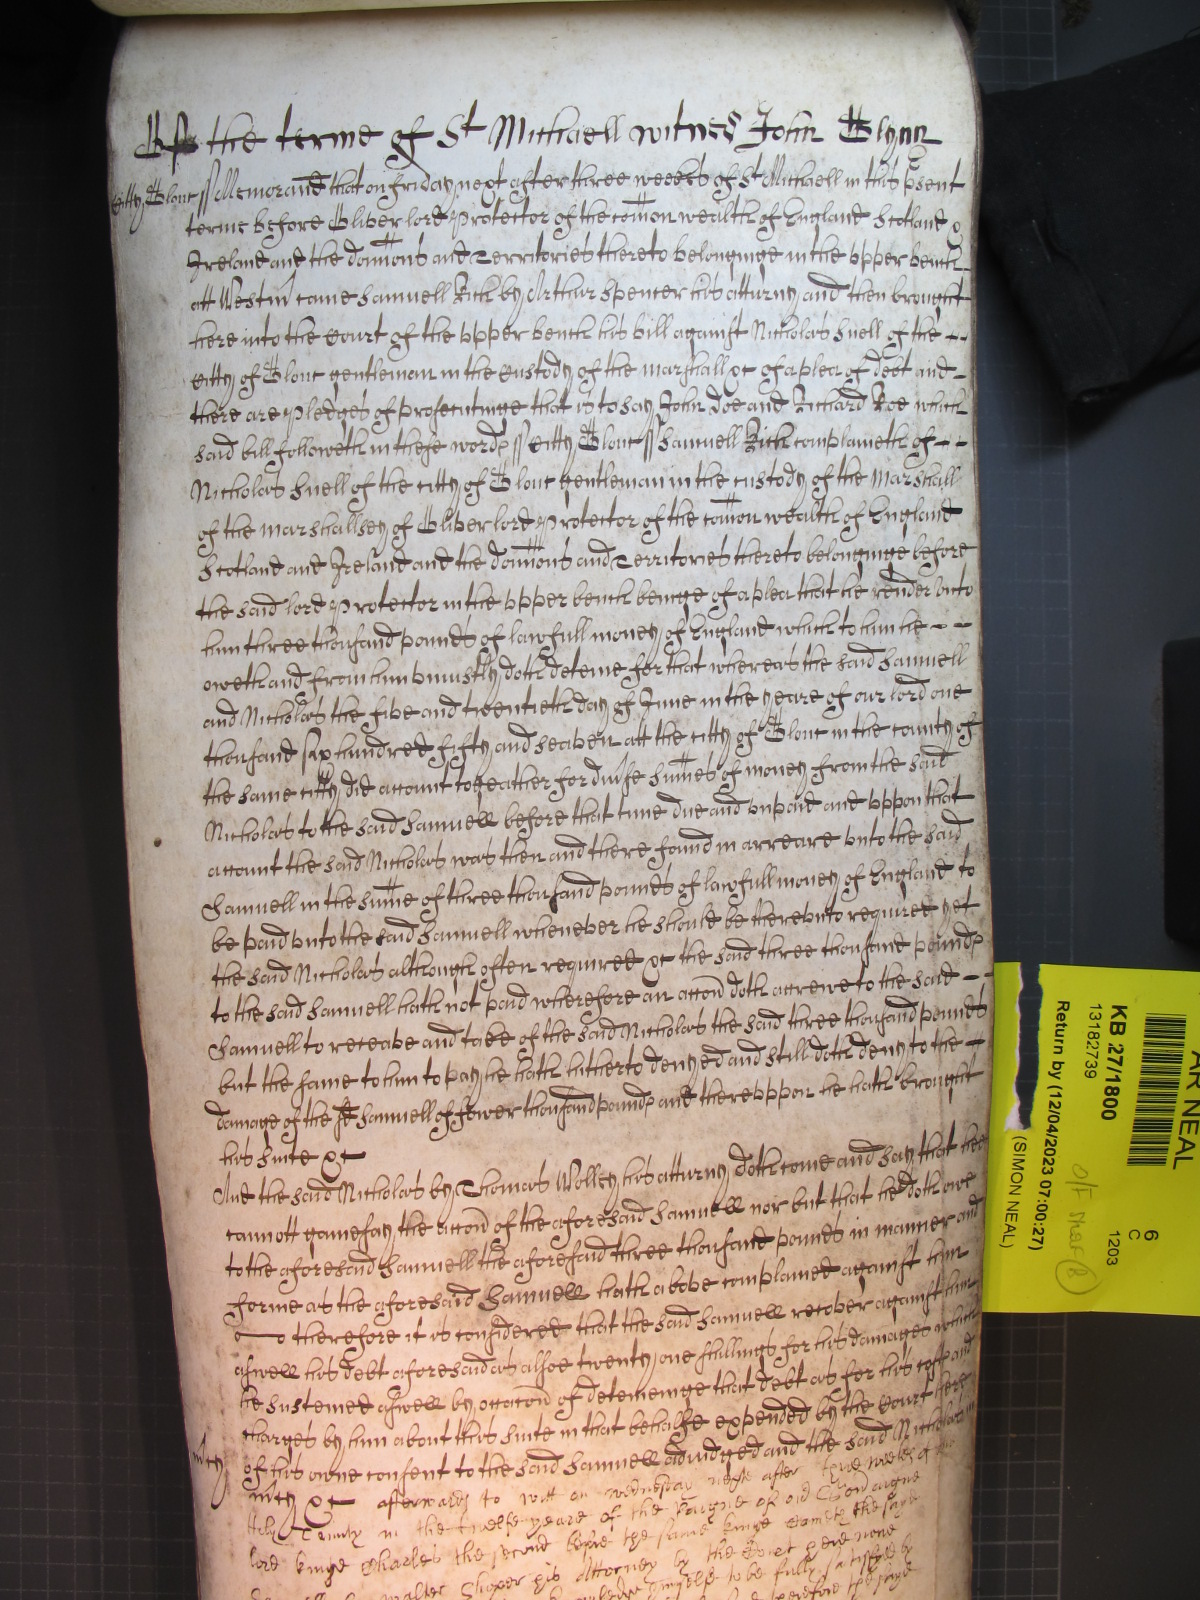 Of the terme of St Michaell witnes John Glynn
Citty Glouc ss Memorand that on Friday next after three weekes of St Michaell in this psent
terme before Oliver lord Protector of the comon wealth of England Scotland &
Ireland and the domions and Territories thereto belonginge in the upper bench
att Westm came Samuell Rich by Arthur Spencer his atturny and then brought
here into the Court of the upper bench his bill against Nicholas Snell of the --
Citty of Glouc gentleman in the Custody of the marshall &c of a plea of debt and -
there are pledges of prosecutinge that is to say John Doe and Richard Roe which
said bill followeth in these words ss Citty Glouc ss Samuell Rich complaineth of --
Nicholas Snell of the citty of Glouc gentleman in the custody of the Marshall
of the marshallsey of Oliver lord Protector of the comon wealth of England
Scotland and Ireland and the domions and Territories thereto belonginge before
the said lord Protector in the upper bench beinge of a plea that he render unto
him three thousand pounds of lawfull money of England which to him he --
oweth and from him uniustly doth deteine for that whereas the said Samuell
and Nicholas the five and twentieth day of June in the yeare of our lord one
thousand six hundred fifty and seaven att the citty of Glouc in the county of
the same citty did account togeather for divse sumes of money from the said
Nicholas to the said Samuell before that time due and unpaid and uppon that
account the said Nicholas was then and there found in arreare unto the said
Samuell in the sume of three thousand pounds of lawfull money of England to
be paid unto the said Samuell whenever he should be thereunto required yet
the said Nicholas although often required &c the said three thousand pounds
to the said Samuell hath not paid wherefore an accon doth accrewe to the said --
Samuell to receave and take of the said Nicholas the said three thousand pounds
but the same to him to pay he hath hitherto denyed and still doth deny to the -
damage of the sd Samuell of fower thousand pounds and thereuppon he hath brought
his suite &c
And the said Nicholas by Thomas Wolley his atturny doth come and say that hee
cannott gainesay the accon of the aforesaid Samuell nor but that he doth owe
to the aforesaid Samuell the aforesaid three thousand pounds in manner and
forme as the aforesaid Samuell hath above complained against him
therefore it is considered that the said Samuell recover against him
aswell his debt aforesaid as alsoe twenty one shillings for his damages which
he susteined aswell by occacon of deteineinge that debt as for his costs and
charges by him about his suite in that behalfe expended by the Court here
of his owne consent to the said Samuell adiudged and the said Nicholas in
mcy
mcy &c afterwards to witt on wednesday next after three weekes of the
holy Trinity in the twelfe yeare of the Raigne of our Soveraigne
lord kinge Charles the second before the same kinge cometh the said
Walter his Attorney by the Court here
to be fully satisfyed
therefore the said
AR NEAL
KB 27/1800
13182739
Return by (12/04/2023 07:00:27)
(SIMON NEAL)
6
C
1203